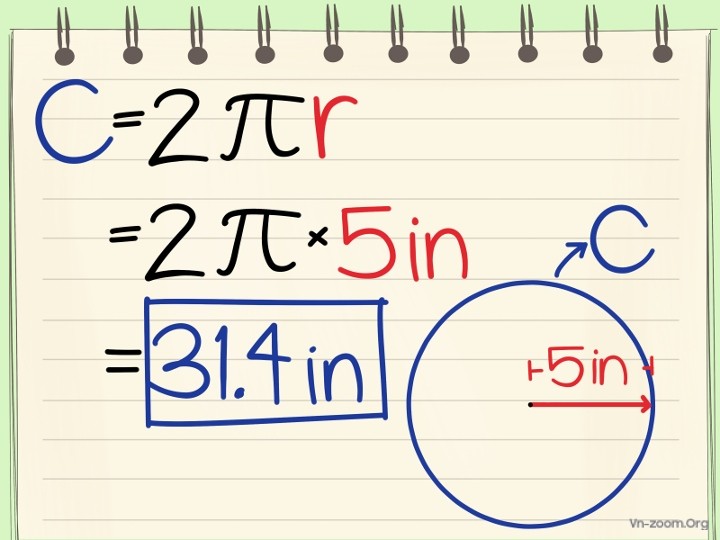 C=2πr
=2π×5in
C
=31.4in
5in
Vn-zoom.Org